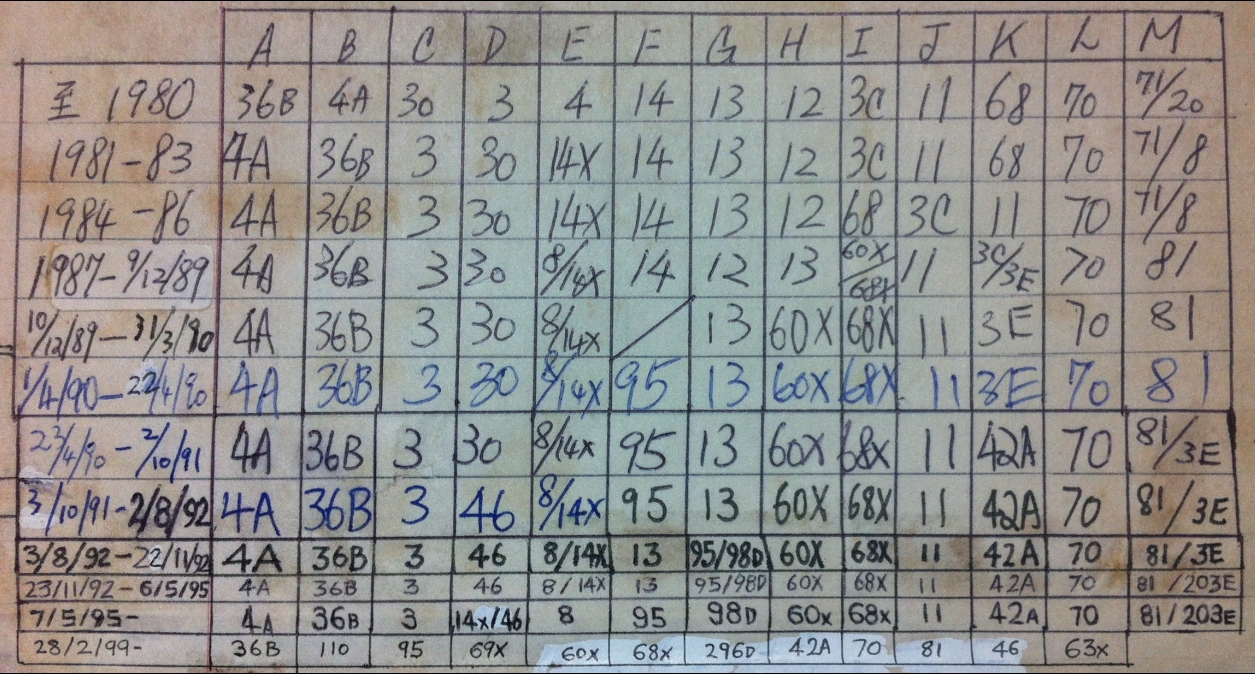 A B C D E F G H I J K L M
至 1980 36B 4A 30 3 4 14 13 12 3C 11 68 70 71/20
1981-83 4A 36B 3 30 14X 14 13 12 3C 11 68 70 71/8
1984-86 4A 36B 3 30 14X 14 13 12 68 3C 11 70 71/8
1987-9/12/89 4A 36B 3 30 8/14X 14 12 13 60X/68X 11 3C/3E 70 81
10/12/89-31/3/90 4A 36B 3 30 8/14X / 13 60X 68X 11 3E 70 81
1/4/90-22/4/90 4A 36B 3 30 8/14X 95 13 60X 68X 11 3E 70 81
23/4/90-2/10/91 4A 36B 3 30 8/14X 95 13 60X 68X 11 42A 70 81/3E
3/10/91-2/8/92 4A 36B 3 46 8/14X 95 13 60X 68X 11 42A 70 81/3E
3/8/92-22/11/92 4A 36B 3 46 8/14X 13 95/98D 60X 68X 11 42A 70 81/3E
23/11/92-6/5/95 4A 36B 3 46 8/14X 13 95/98D 60X 68X 11 42A 70 81/203E
7/5/95- 4A 36B 3 14X/46 8 95 98D 60X 68X 11 42A 70 81/203E
28/2/99- 36B 110 95 69X 60X 68X 296D 42A 70 81 46 63X